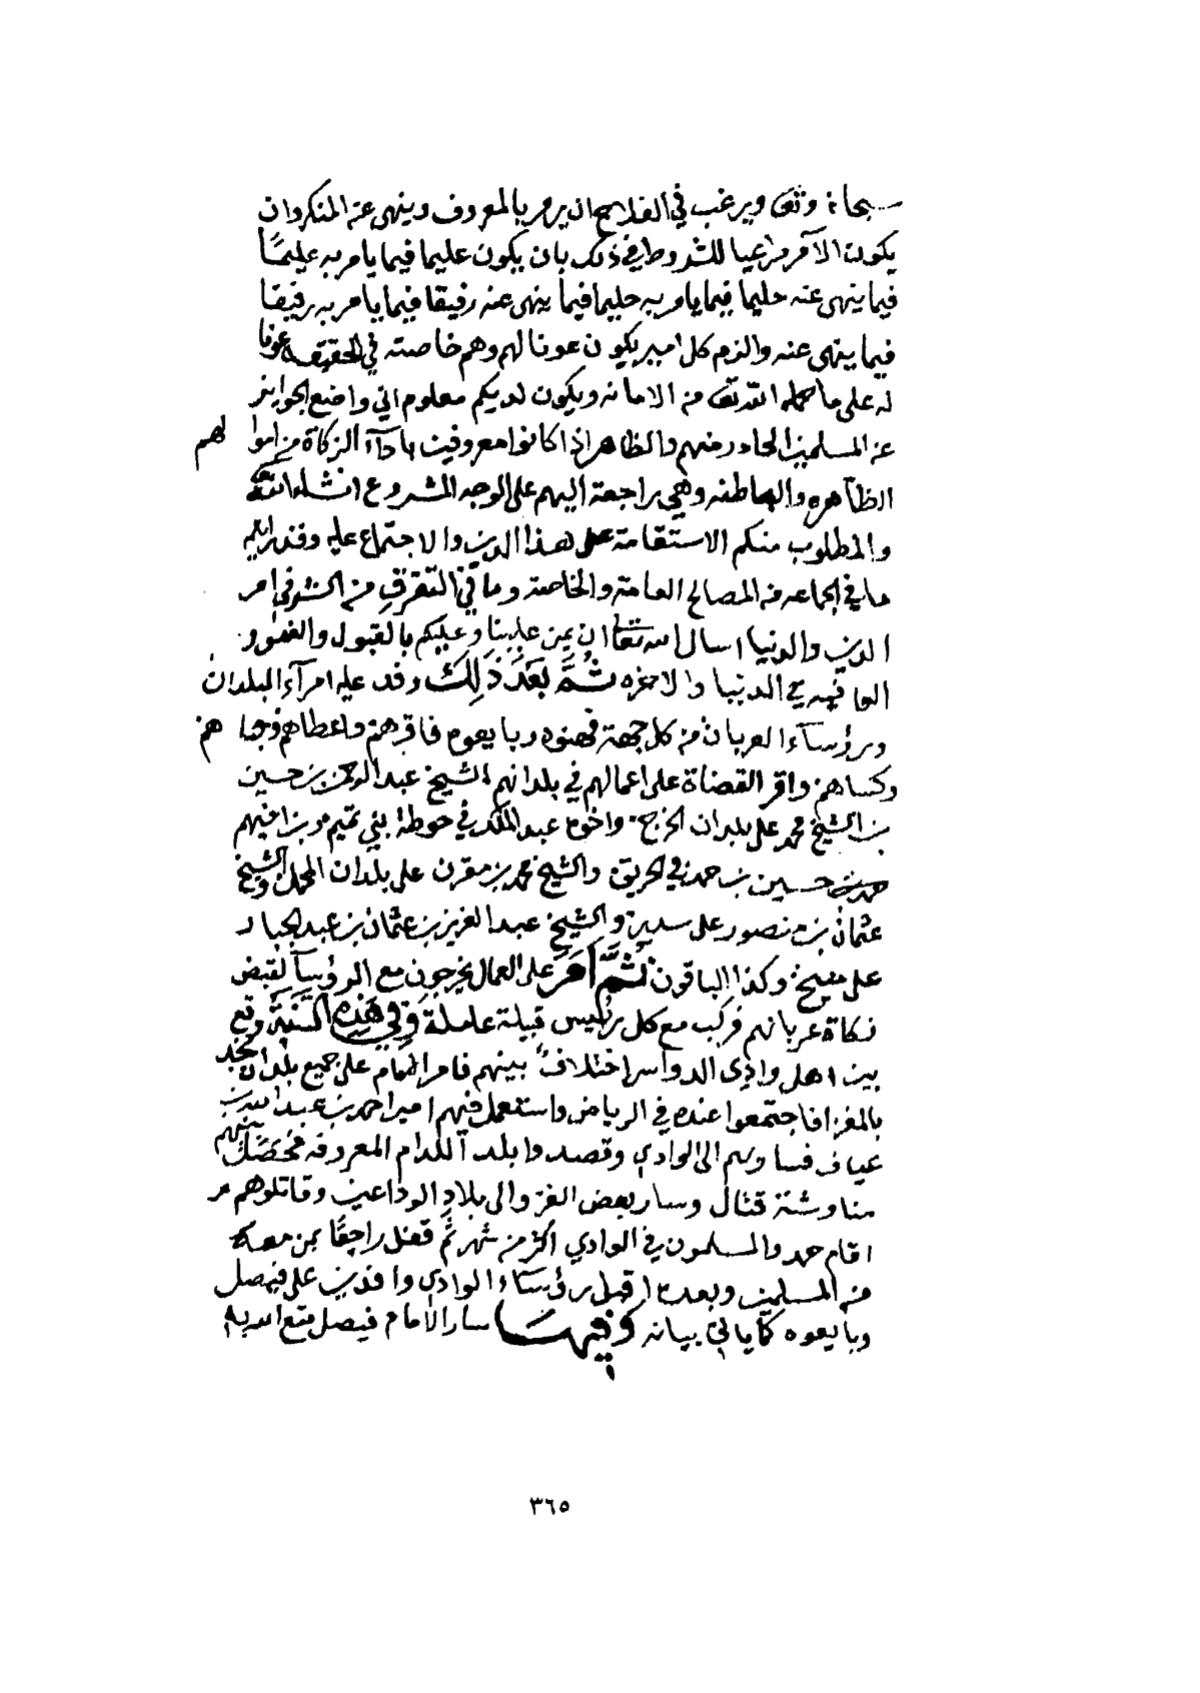 سبحانه وتعى ويرغب في الفلاح ان يومر بالمعروف وينهى عن المنكر وان
يكون الآمر مراعيا للشروط في ذلك بان يكون عليما فيما يامر به عليمًا
فيما ينهى عنه حليما فيما يامر به حليما فيما ينهى عنه رفيقا فيما يامر به رفيقا
فيما ينهى عنه والزم كل امير يكون عونا لهم وهم خاصته في الحقيقه عونا
له على ما حمله الله تعى من الامانه ويكون لديكم معلوم اني واضع الجوايز
عن المسلمين الحادر منهم والظاهر اذا كانوا معروفين بادآء الزكاة من اموالهم
الظآهره والباطنه وهي راجعة اليهم على الوجه المشروع انشاء الله
والمطلوب منكم الاستقامة على هذا الدين والاجتماع عليه وقد رايتم
ما في الجماعه من المصالح العامة والخاصة وما في التفرق من الشر في امر
الدين والدنيا اسال الله تعا ان يمن علينا وعليكم بالقبول والعفو و
العافيه في الدنيا والاخره ثُمَّ بَعَدَ ذَلِكَ وفد عليه امرآء البلدان
ورؤسآء العربان من كل جهة فهنوه وبايعوه فاقرهم واعطاهم وحباهم
وكساهم واقر القضاة على اعمالهم في بلدانهم الشيخ عبد الرحمن بن حسين
بن الشيخ محمد على بلدان الخرج واخوه عبد الملك في حوطة بني تميم
حمد بن حسين بن حمد في الحريق والشيخ محمد بن مقرن على بلدان المحمل والشيخ
عثمان بن منصور على سدير والشيخ عبد العزيز بن عثمان بن عبد الجبار
على منيخ وكذا الباقون ثُمَّ أَمَرَ على العمال يخرجون مع الرؤسآ لقبض
زكاة عربانهم فركب مع كل رئيس قبيلة عاملة وَفِي هَذِهِ السَّنَةِ وقع
بين اهل وادي الدواسر اختلافٌ بينهم فامر الامام على جميع بلدان نجد
بالمغزا فاجتمعوا عنده في الرياض واستعمل فيهم اميرا حمد بن عبد الله بن
عياف فسار بهم الى الوادي وقصدوا بلد اللدام المعروفه فحصل بينهم
مناوشة قتال وسار بعض الغزو الى بلاد الوداعين وقاتلوهم
اقام حمد والمسلمون في الوادي اكثر من شهر ثم قفل راجعًا بمن معه
من المسلمين وبعد اقبل رؤسآء الوادي وافدين على فيصل
وبايعوه كما ياتي بيانه وَفِيهَا سار الامام فيصل متع الله به
٣٦٥